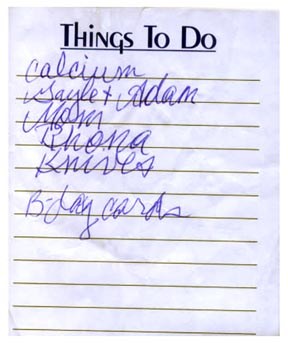 Things To Do
Calcium
Gayle + Adam
Mom
Rhona
Knives
B-day cards